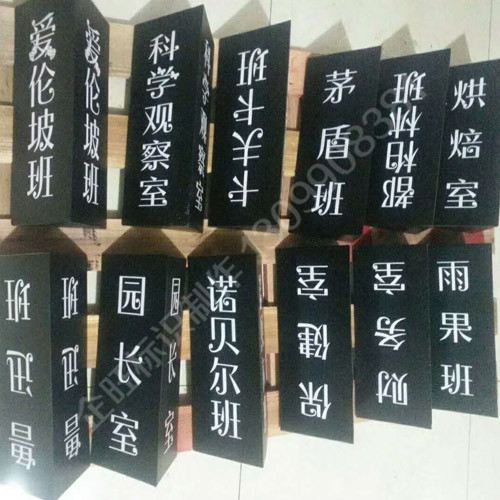 爱伦坡班
爱伦坡班
科学观察室
科学观察室
卡夫卡班
茅盾班
都柏林班
烘焙室
鲁迅班
鲁迅班
园长室
园长室
诺贝尔班
保健室
财务室
雨果班
标识制作